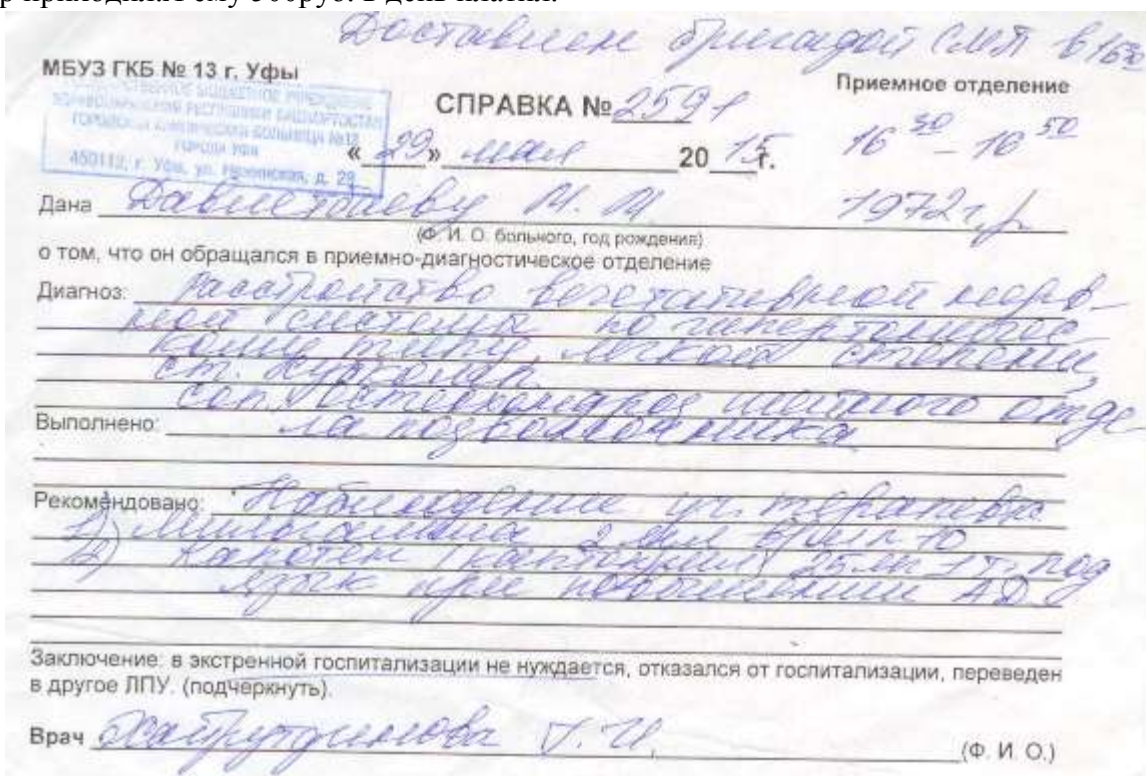 приходил я ему 500руб. в день платил.
Доставлен бригадой СМП в 16 30
МБУЗ ГКБ № 13 г. Уфы
Приемное отделение
ГОСУДАРСТВЕННОЕ БЮДЖЕТНОЕ УЧРЕЖДЕНИЕ
ЗДРАВООХРАНЕНИЯ РЕСПУБЛИКИ БАШКОРТОСТАН
ГОРОДСКАЯ КЛИНИЧЕСКАЯ БОЛЬНИЦА №13
ГОРОДА УФА
450112, г. Уфа, ул. д. 29
СПРАВКА № 2591
« 29 » мая 20 15 г.
16 30 - 16 50
Дана Давлетбаеву И. И. 1972 г.р.
(Ф. И. О. больного, год рождения)
о том, что он обращался в приемно-диагностическое отделение
Диагноз: Расстройство вегетативной нерв-
ной системы по гипертоничес-
кому типу, легкой степени
ст.
соп. Остеохондроз шейного отде-
Выполнено: ла позвоночника
Рекомендовано: Наблюдение уч. терапевта
1) Мильгамма 2 мл в/м n 10
2) Капотен (каптоприл) 25 мг 1 т. под
язык при повышении АД
Заключение: в экстренной госпитализации не нуждается, отказался от госпитализации, переведен
в другое ЛПУ. (подчеркнуть).
Врач Хайрутдинова Г. И. (Ф. И. О.)